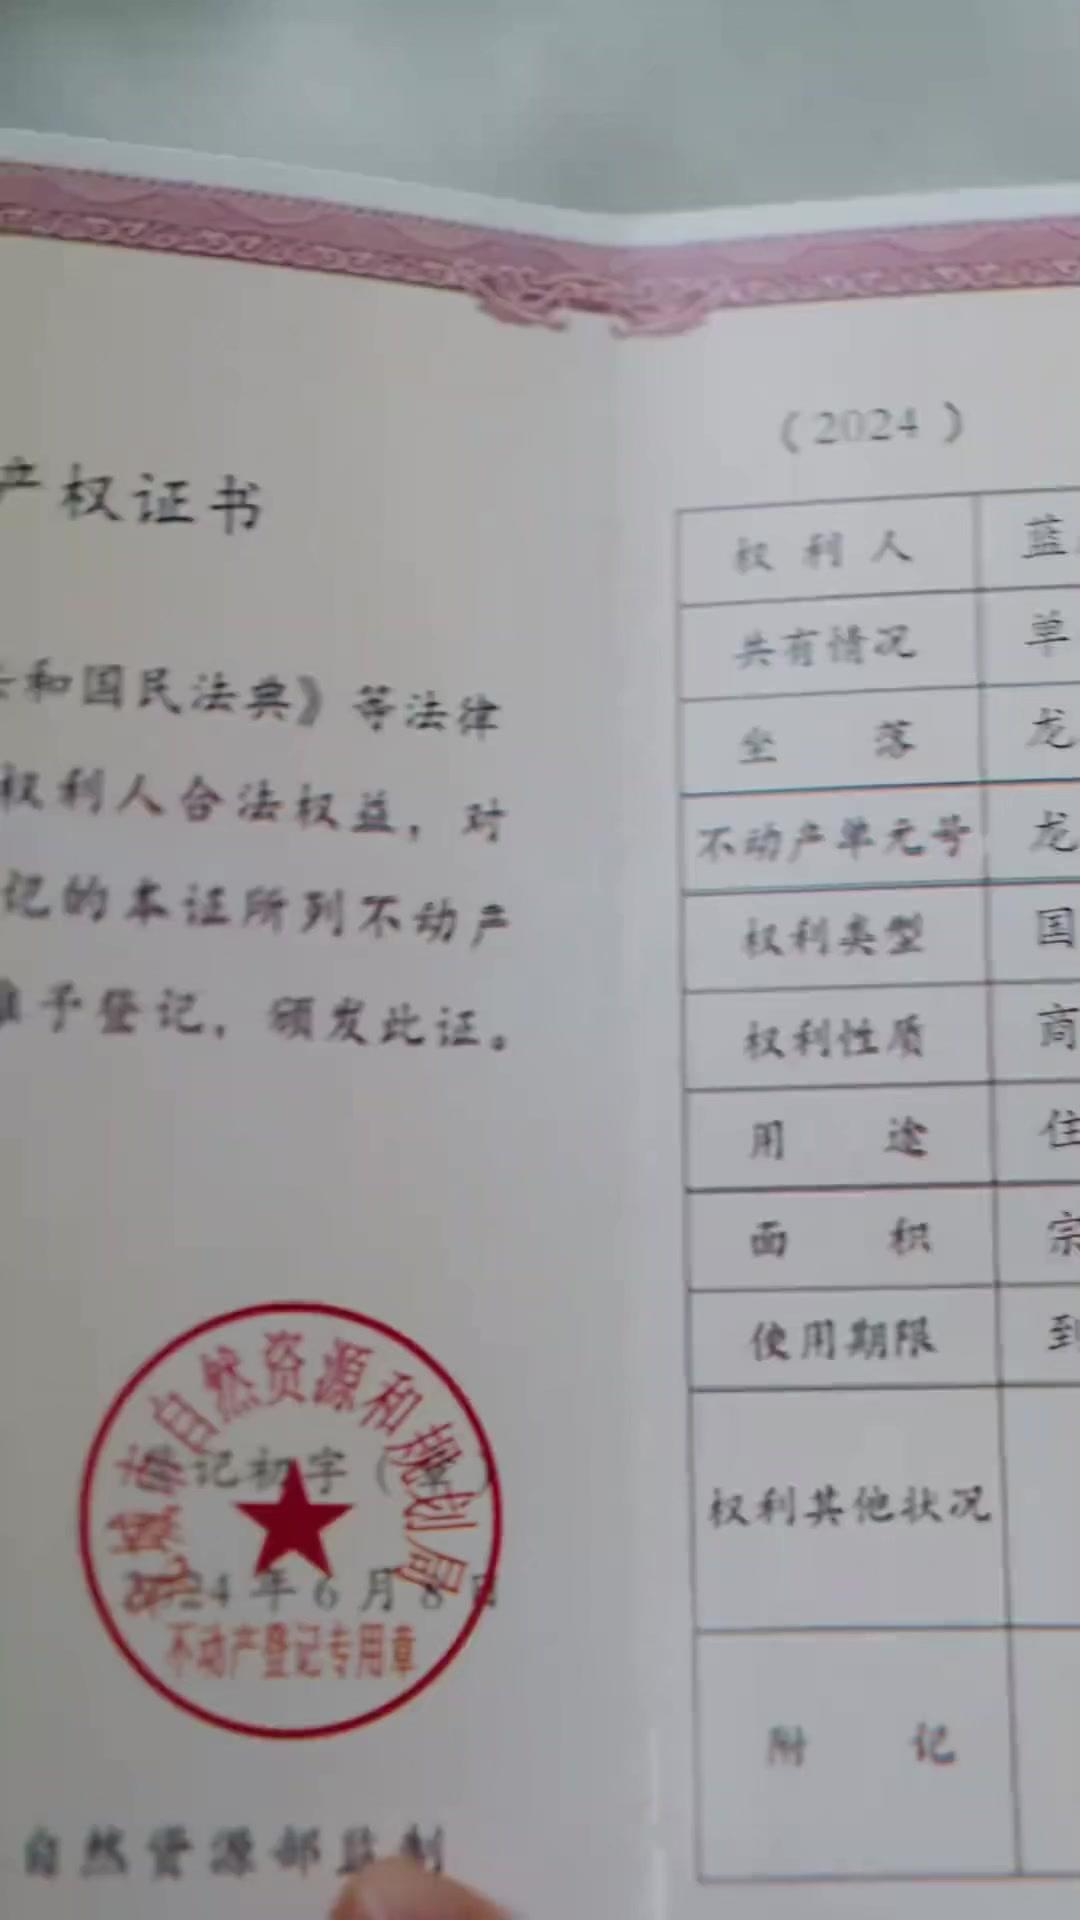 产权证书
和国民法典》等法律
权利人合法权益，对
记的本证所列不动产
准予登记，颁发此证。
市自然资源和规划局
登记机构（章）
2024年6月8日
不动产登记专用章
自然资源部监制
（2024）
权利人 蓝
共有情况 单
坐落 龙
不动产单元号 龙
权利类型 国
权利性质 商
用途 住
面积 宗
使用期限 到
权利其他状况
附记